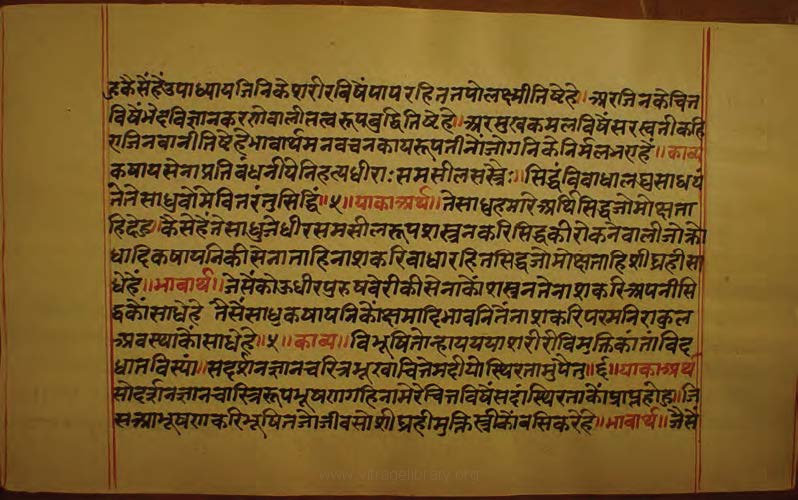 हु कैसेंहेंउपाध्यायजिनिकेशरीरविषेंपापरहिततपोलक्ष्मीतिष्टेहे॥अरजिनकेचित्त
विषेंभेदविज्ञानकरणेवालीतत्वरूपबुद्धितिष्टेहे॥अरमुखकमलविषेंसरस्वतीकहि
एजिनबानीतिष्टेहेभावार्थमनवचनकायरूपतीनोंजोगजिनकेनिर्मलभएहें॥काव्य
कषायसेनाप्रतिबंधनीयेनिहत्यधीराःसमसीलसस्त्रैः॥सिद्धिंविबाधालघुसाधयं
तेतेसाधवोमेवितरंतुसिद्धिं॥५॥याकाअर्थ॥तेसाधुहमारेअर्थिसिद्धजोमोक्षता
हिदेहु॥कैसेहेंतेसाधुजेधीरसमसीलरूपशस्त्रनकरिसिद्धकीरोकनेवालीजोक्रो
धादिकषायनिकीसेनाताहिनाशकरिबाधारहितसिद्धजोमोक्षताहिशीघ्रहीसा
धेहें॥भावार्थ॥जेसेंकोऊधीरपुरुषवेरीकीसेनाकोंशस्त्रनतेनाशकरिअपनीसि
द्धकोंसाधेहे तेसेंसाधुकषायनिकोंक्षमादिभावनितेंनाशकरिपरमनिराकुल
अवस्थाकोंसाधेहे॥५॥काव्य॥विभूषितोन्हायययाशरीरीविमुक्तिकांतांविद
धातिवस्यां॥सदर्शनज्ञानचरित्रभूषाचित्तेमदीयेस्थिरतामुपैतु॥६॥याकाअर्थ
सोदर्शनज्ञानचारित्ररूपभूषणगहिनामेरेचित्तविषेंसदास्थिरताकोंप्राप्तहोहु॥जि
सआभूषणकरिभूषितजोजीवसोशीघ्रहीमुक्तिस्त्रीकोंवसिकरेहे॥भावार्थ॥जैसें
www.vitragelibrary.org